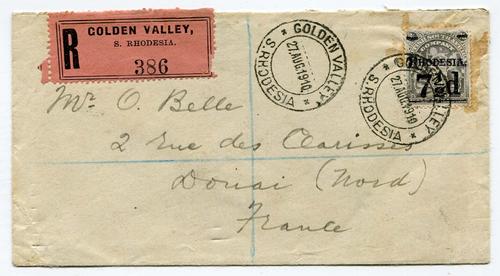 R
GOLDEN VALLEY,
S. RHODESIA.
386
GOLDEN VALLEY
27 AUG 1910
S. RHODESIA
GOLDEN VALLEY
27 AUG 1910
S. RHODESIA
SOUTH
COMPANY
RHODESIA.
7½d
Mr O. Belle
2 rue des Clarisses
Douai (Nord)
France